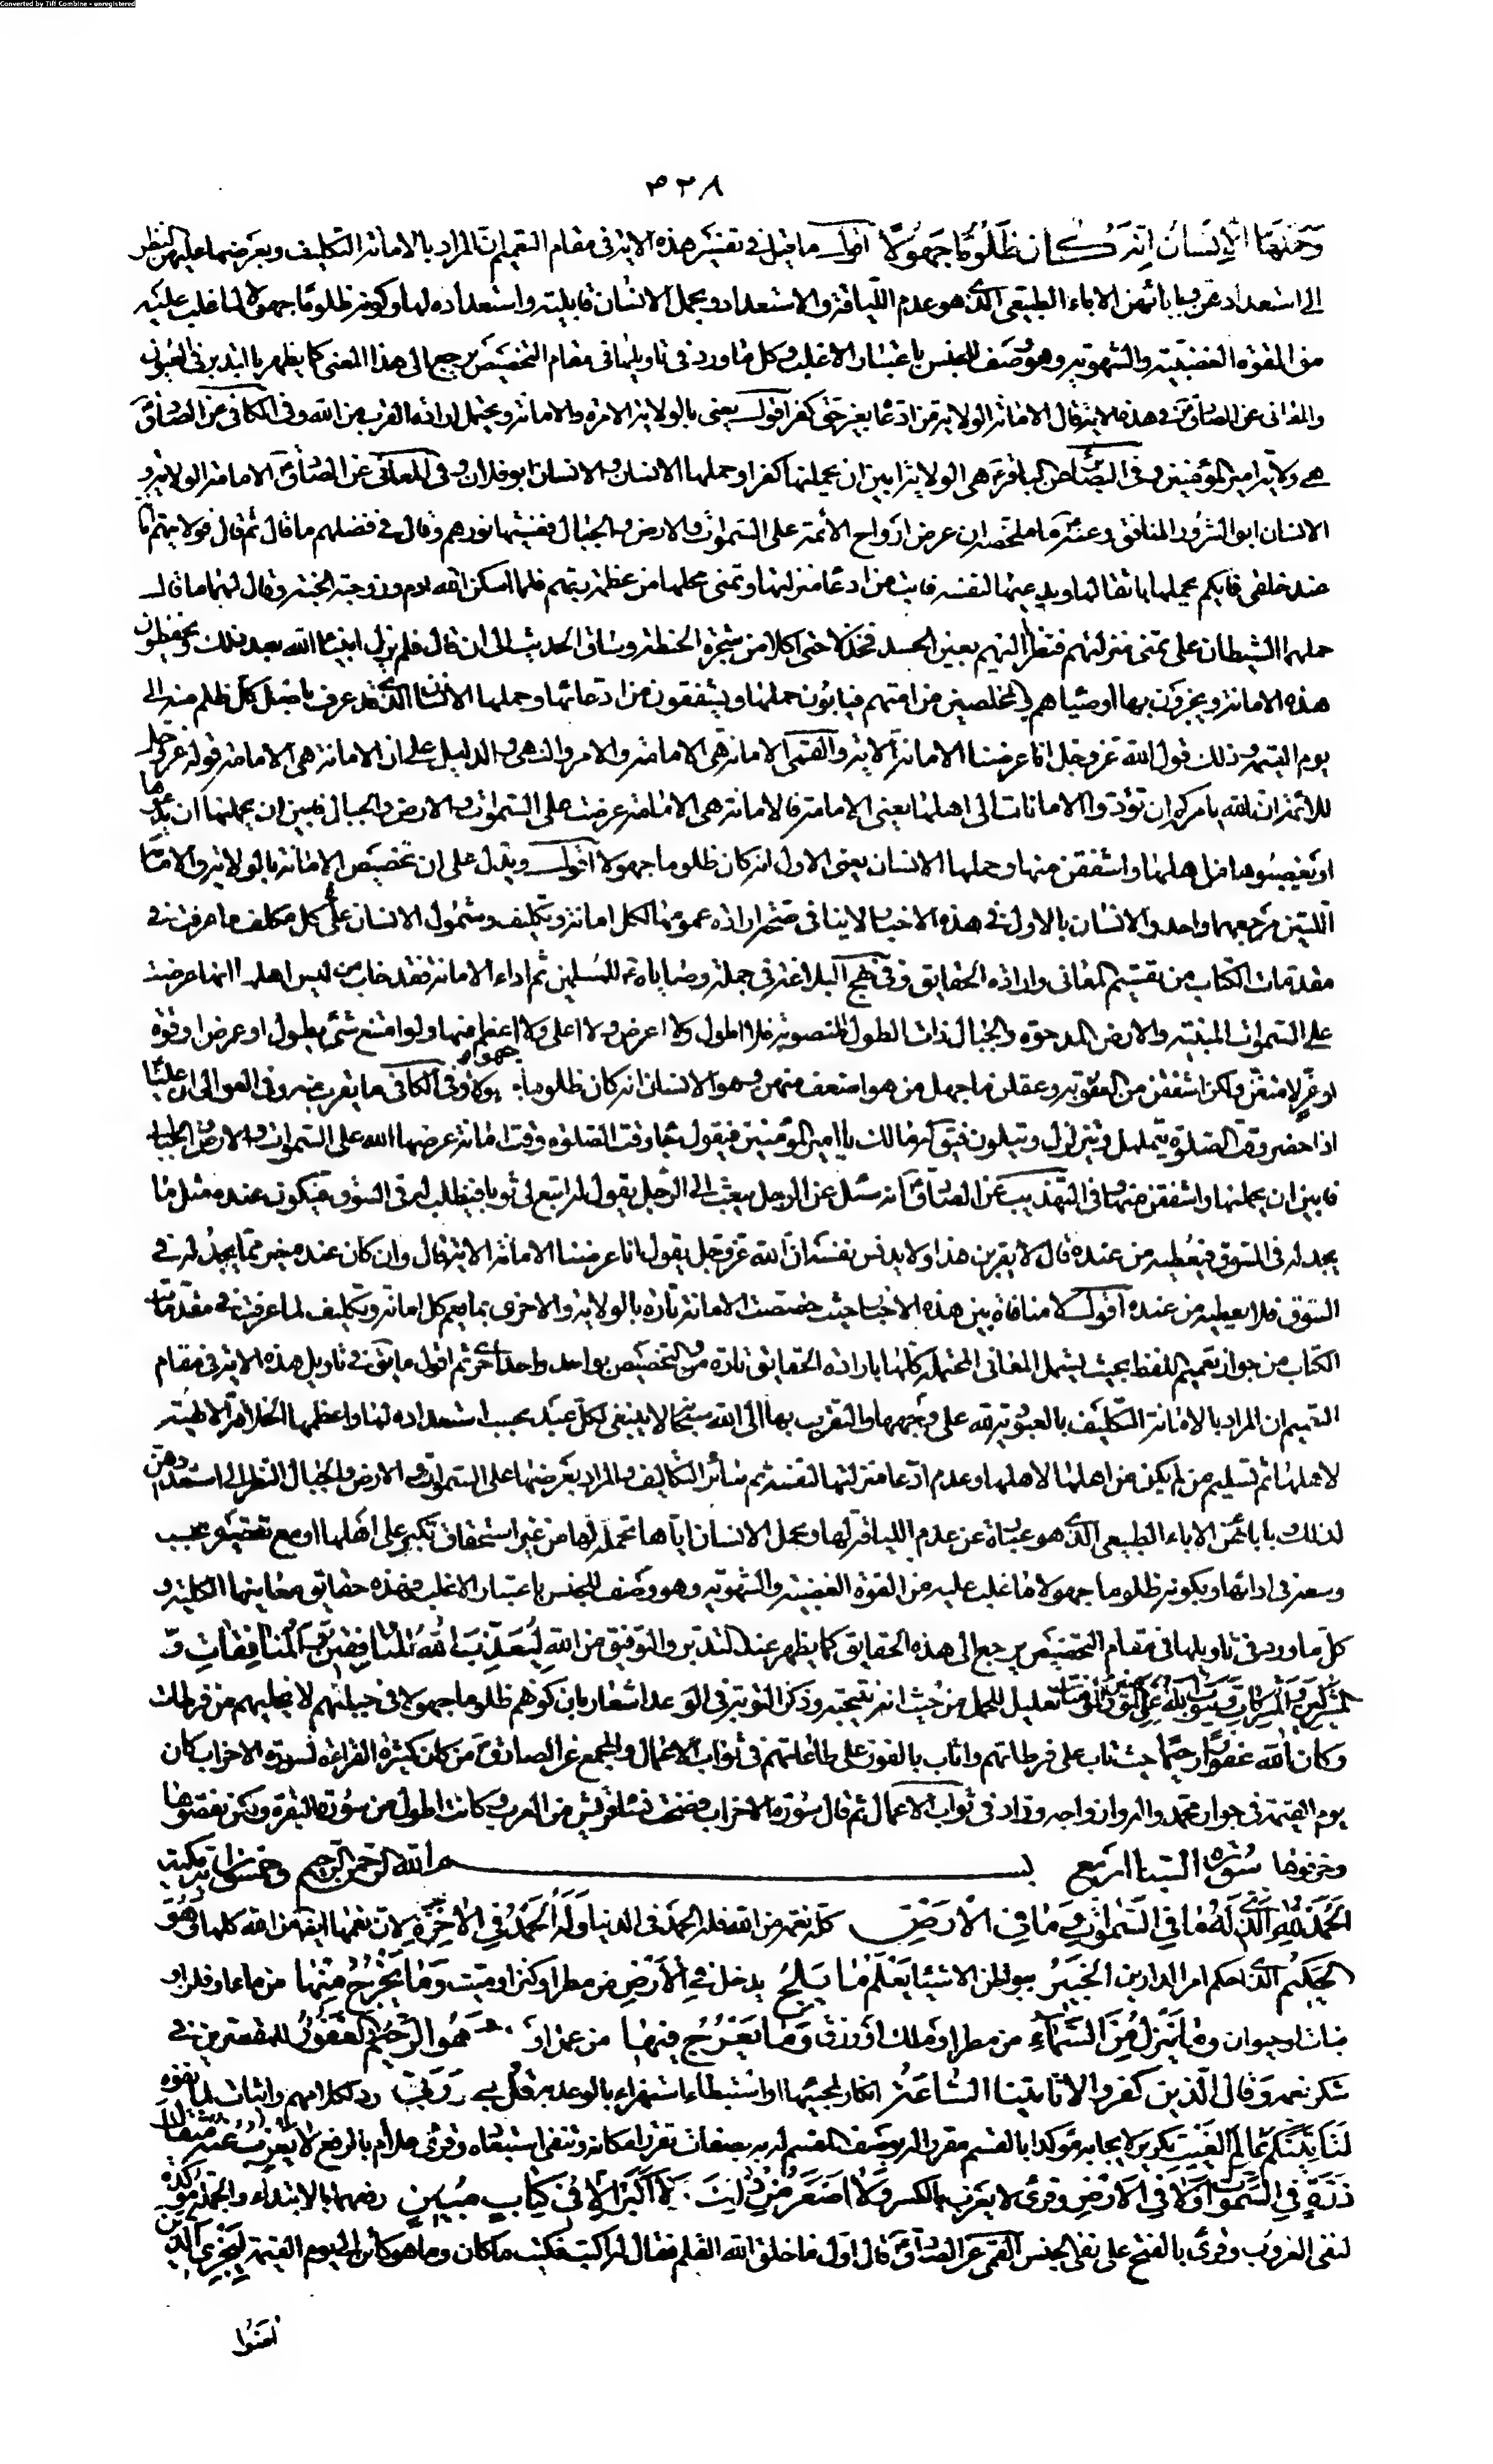 Converted by Tiff Combine - unregistered
٤٣٨
وَحَمَلَهَا الْإِنْسَانُ إِنَّهُ كَانَ ظَلُومًا جَهُولًا اقول ما قيل في تفسير هذه الآية في مقام التعميم ان المراد بالامانة التكليف وبعرضها عليهن النظر
الى استعدادهن وبابائهن الاباء الطبيعي الذي هو عدم اللياقة والاستعداد وبحمل الانسان قابليته واستعداده لها وكونه ظلوما جهولا لما غلب عليه
من القوة الغضبية والشهوية وهو وصف للجنس باعتبار الاغلب وكل ما ورد في تاويلها في مقام التخصيص يرجع الى هذا المعنى كما يظهر بالتدبر في العيون
والمعاني عن الصادق في هذه الاية قال الامانة الولاية من ادعاها بغير حق كفر اقول يعني بالولاية الامرة والامامة ويحتمل ارادة القرب من الله وفي الكافي عن الصادق
هي ولاية امير المؤمنين وفي البصائر عن الباقر هي الولاية ابين ان يحملنها كفرا وحملها الانسان والانسان ابو فلان وفي المعاني عن الصادق الامانة الولاية و
الانسان ابو الشرور المنافق وعنه ما ملخصه ان عرض ارواح الأئمة على السموات والارض والجبال فغشيها نورهم وقال في فضلهم ما قال ثم قال فولايتهم امانة
عند خلقي فايكم يحملها باثقالها ويدعيها لنفسه فابت من ادعاء منزلتها وتمنى محلها من عظمة ربهم فلما اسكن الله ادم وزوجته الجنة وقال لهما ما قال
حملهما الشيطان على تمنى منزلتهم فنظرا اليهم بعين الحسد فخذلا حتى اكلا من شجرة الحنطة وساق الحديث الى ان قال فلم يزل انبياء الله بعد ذلك يحفظون
هذه الامانة ويخبرون بها اوصياءهم والمخلصين من امتهم فيابون حملها ويشفقون من ادعائها وحملها الانسان الذي قد عرف باصل كل ظلم منه الى
يوم القيمة وذلك قول الله عز وجل انا عرضنا الامانة الاية والقمى الامانة هي الامامة والامر والنهى والدليل على ان الامانة هي الامامة قوله عز وجل
للائمة ان الله يامركم ان تؤدوا الامانات الى اهلها يعنى الامامة فالامانة هي الامامة عرضت على السموات والارض والجبال فابين ان يحملنها ان يدعوها
او يغصبوها من اهلها واشفقن منها وحملها الانسان يعنى الاول انه كان ظلوما جهولا اقول ويدل على ان تخصيص الامانة بالولاية والامامة
اللتين مرجعهما واحد والانسان بالاول في هذه الاخبار لا ينافي صحة ارادة عمومها لكل امانة وتكليف وشمول الانسان على كل مكلف ما عرفت في
مقدمات الكتاب من تقسيم المعاني وارادة الحقايق وفي نهج البلاغة في جملة وصاياه للمسلمين ثم اداء الامانة فقد خاب من ليس اهلها انها عرضت
على السموات المبنية والارض المدحوة والجبال ذات الطول المنصوبة فلا اطول ولا اعرض ولا اعلى ولا اعظم منها ولو امتنع شئ بطول او عرض او قوة
او عز لامتنعن ولكن اشفقن من العقوبة وعقلن ما جهل من هو اضعف منهن وهو الانسان انه كان ظلوما جهولا وفي الكافي ما يقرب منه وفي العوالى ان عليا
اذا حضر وقت الصلوة يتململ ويتزلزل ويتلون فيقال له ما لك يا امير المؤمنين فيقول جاء وقت الصلوة وقت امانة عرضها الله على السموات والارض والجبال
فابين ان يحملنها واشفقن منها وفي التهذيب عن الصادق انه سئل عن الرجل يبعث الى الرجل يقول له ابتع لي ثوبا فيطلب له في السوق فيكون عنده مثل ما
يجد له في السوق فيعطيه من عنده قال لا يقربن هذا ولا يدنس نفسه ان الله عز وجل يقول انا عرضنا الامانة الاية قال وان كان عنده خير مما يجد له في
السوق فلا يعطيه من عنده اقول لا منافاة بين هذه الاخبار حيث خصصت الامانة تارة بالولاية والاخرى بما يعم كل امانة وتكليف لما عرفت في مقدمات
الكتاب من جواز تعميم اللفظ بحيث يشمل المعاني المحتملة كلها بارادة الحقايق تارة والتخصيص بواحد واحد اخرى ثم اقول ما يق في تاويل هذه الاية في مقام
التعميم ان المراد بالامانة التكليف بالعبودية لله على وجهها والتقرب بها الى الله سبحانه كما ينبغى لكل عبد بحسب استعداده لها واعظمها الخلافة الالهية
لاهلها ثم تسليم من لم يكن من اهلها لاهلها وعدم ادعاء منزلتها لنفسه ثم سائر التكاليف والمراد بعرضها على السموات والارض والجبال النظر الى استعدادهن
لذلك وبابائهن الاباء الطبيعي الذي هو عبارة عن عدم اللياقة لها وبحمل الانسان اياها تحمله لها من غير استحقاق تكبرا على اهلها او مع تقصيره بحسب
وسعه في ادائها وبكونه ظلوما جهولا ما غلب عليه من القوة الغضبية والشهوية وهو وصف للجنس باعتبار الاغلب وهذه حقايق معانيها الكلية و
كل ما ورد في تاويلها في مقام التخصيص يرجع الى هذه الحقايق كما يظهر عند التدبر والتوفيق من الله لِيُعَذِّبَ اللَّهُ الْمُنَافِقِينَ وَالْمُنَافِقَاتِ وَ
الْمُشْرِكِينَ وَالْمُشْرِكَاتِ وَيَتُوبَ اللَّهُ عَلَى الْمُؤْمِنِينَ وَالْمُؤْمِنَاتِ تعليل للحمل من حيث انه نتيجته وذكر التوبة في الوعد اشعار بان كونهم ظلوما جهولا في جبلتهم لا يخليهم من فرطات
وَكَانَ اللَّهُ غَفُورًا رَحِيمًا حيث تاب على فرطاتهم واثاب بالفوز على طاعاتهم في ثواب الاعمال والمجمع عن الصادق من كان كثير القراءة لسورة الاحزاب كان
يوم القيمة في جوار محمد واله وازواجه وزاد في ثواب الاعمال ثم قال سورة الاحزاب فضحت نساء قريش من العرب وكانت اطول من سورة البقرة ولكن نقصوها
وحرفوها سورة السبا اربع وخمسون اية مكية بسم الله الرحمن الرحيم
الْحَمْدُ لِلَّهِ الَّذِي لَهُ مَا فِي السَّمٰوَاتِ وَمَا فِي الْأَرْضِ كله نعمة من الله فله الحمد في الدنيا وَلَهُ الْحَمْدُ فِي الْآخِرَةِ لان نعمها ايضا من الله كلها وَهُوَ
الْحَكِيمُ الذي احكم امر الدارين الْخَبِيرُ ببواطن الاشياء يَعْلَمُ مَا يَلِجُ يدخل فِي الْأَرْضِ من مطر او كنز او ميت وَمَا يَخْرُجُ مِنْهَا من ماء او فلز او
نبات او حيوان وَمَا يَنْزِلُ مِنَ السَّمَاءِ من مطر او ملك او رزق وَمَا يَعْرُجُ فِيهَا من عمل او وَهُوَ الرَّحِيمُ الْغَفُورُ للمقصرين في
شكر نعمه وَقَالَ الَّذِينَ كَفَرُوا لَا تَأْتِينَا السَّاعَةُ انكار لمجيئها او استبطاء استهزاء بالوعد به قُلْ بَلَى وَرَبِّي رد لكلامهم واثبات لما نفوه
لَتَأْتِيَنَّكُمْ عَالِمِ الْغَيْبِ تكرير لايجابه مؤكدا بالقسم مقررا له بوصف المقسم به بصفات تقرر امكانه وتنفى استبعاده وقرئ علام بالرفع لَا يَعْزُبُ عَنْهُ مِثْقَالُ
ذَرَّةٍ فِي السَّمٰوَاتِ وَلَا فِي الْأَرْضِ وقرئ لا يعزب بالكسر وَلَا أَصْغَرُ مِنْ ذٰلِكَ وَلَا أَكْبَرُ إِلَّا فِي كِتَابٍ مُبِينٍ رفعهما بالابتداء والجملة مؤكدة
لنفى العزوب وقرئ بالفتح على نفى الجنس القمى عن الصادق قال اول ما خلق الله القلم فقال له اكتب فكتب ما كان وما هو كائن الى يوم القيمة لِيَجْزِيَ الَّذِينَ
اٰمَنُوا